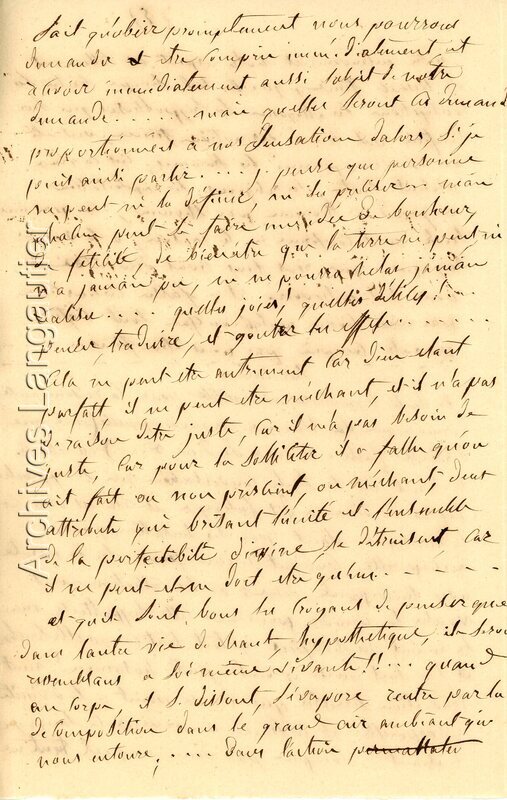 fait qu'obeir promptement nous pourrons
demander et etre compris immédiatement et
avoir immédiatement aussi l'objet de notre
demande...... mais quelles seront ces demand
proportionnés à nos sensations d'alors, si je
puis ainsi parler.... je pense que personne
ne peut ni la définir, ni préciser.. mais
chacun peut se faire une idée de bonheur,
félicité, de bienêtre que la terre ne peut, ni
n'a jamais pu, ni ne pourra hélas jamais
..... quelles joies! quelles délices!...
traduire, et gouter les effets........
Cela ne peut etre autrement car dieu etant
parfait il ne peut etre méchant, et il n'a pas
de raison d'etre juste, car il n'a pas besoin de
juste, car pour la solliciter il a fallu qu'on
ait fait ou non prescient, ou méchant, deux
attributs qui brisant l'unité et l'ensemble
de la perfectibilité divine, le détruisent car
il ne peut et ne doit etre qu'un. - - - - -
et qu'ils sont bons les croyant de penser que
dans l'autre vie de là haut, hypothétique, ils seron
ressemblans a soi même vivants!!... quand
au corps, il se dissout, s'évapore, rentre par la
décomposition dans le grand air ambiant qui
nous entoure,.... Dans l'action
Archives Langautier